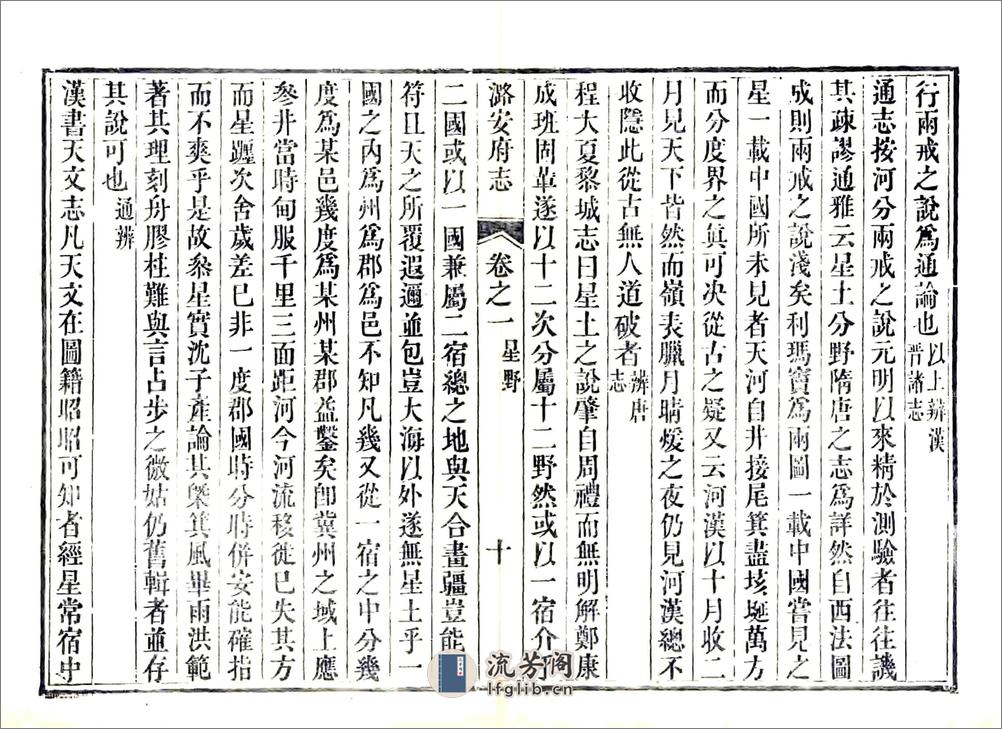 行兩戒之說爲通論也以上辨漢晉諸志
通志按河分兩戒之說元明以來精於測驗者往往譏
其疎謬通雅云星土分野隋唐之志爲詳然自西法圖
成則兩戒之說淺矣利瑪竇爲兩圖一載中國嘗見之
星一載中國所未見者天河自井接尾箕盡垓埏萬方
而分度界之眞可决從古之疑又云河漢以十月收二
月見天下皆然而嶺表臘月晴煖之夜仍見河漢總不
收隱此從古無人道破者辨唐志
程大夏黎城志曰星土之說肇自周禮而無明解鄭康
成班固輩遂以十二次分屬十二野然或以一宿介
潞安府志
卷之一
星野
十
二國或以一國兼屬二宿總之地與天合畫疆豈能
符且天之所覆遐邇並包豈大海以外遂無星土乎一
國之內爲州爲郡爲邑不知凡幾又從一宿之中分幾
度爲某邑幾度爲某州某郡益鑿矣卽冀州之域上應
參井當時甸服千里三面距河今河流移徙已失其方
而星躔次舍歲差已非一度郡國時分時併安能確指
而不爽乎是故參星實沈子產論其槩箕風畢雨洪範
著其理刻舟膠柱難與言占步之微姑仍舊輯者並存
其說可也通辨
漢書天文志凡天文在圖籍昭昭可知者經星常宿中
流芳阁
lfglib.cn